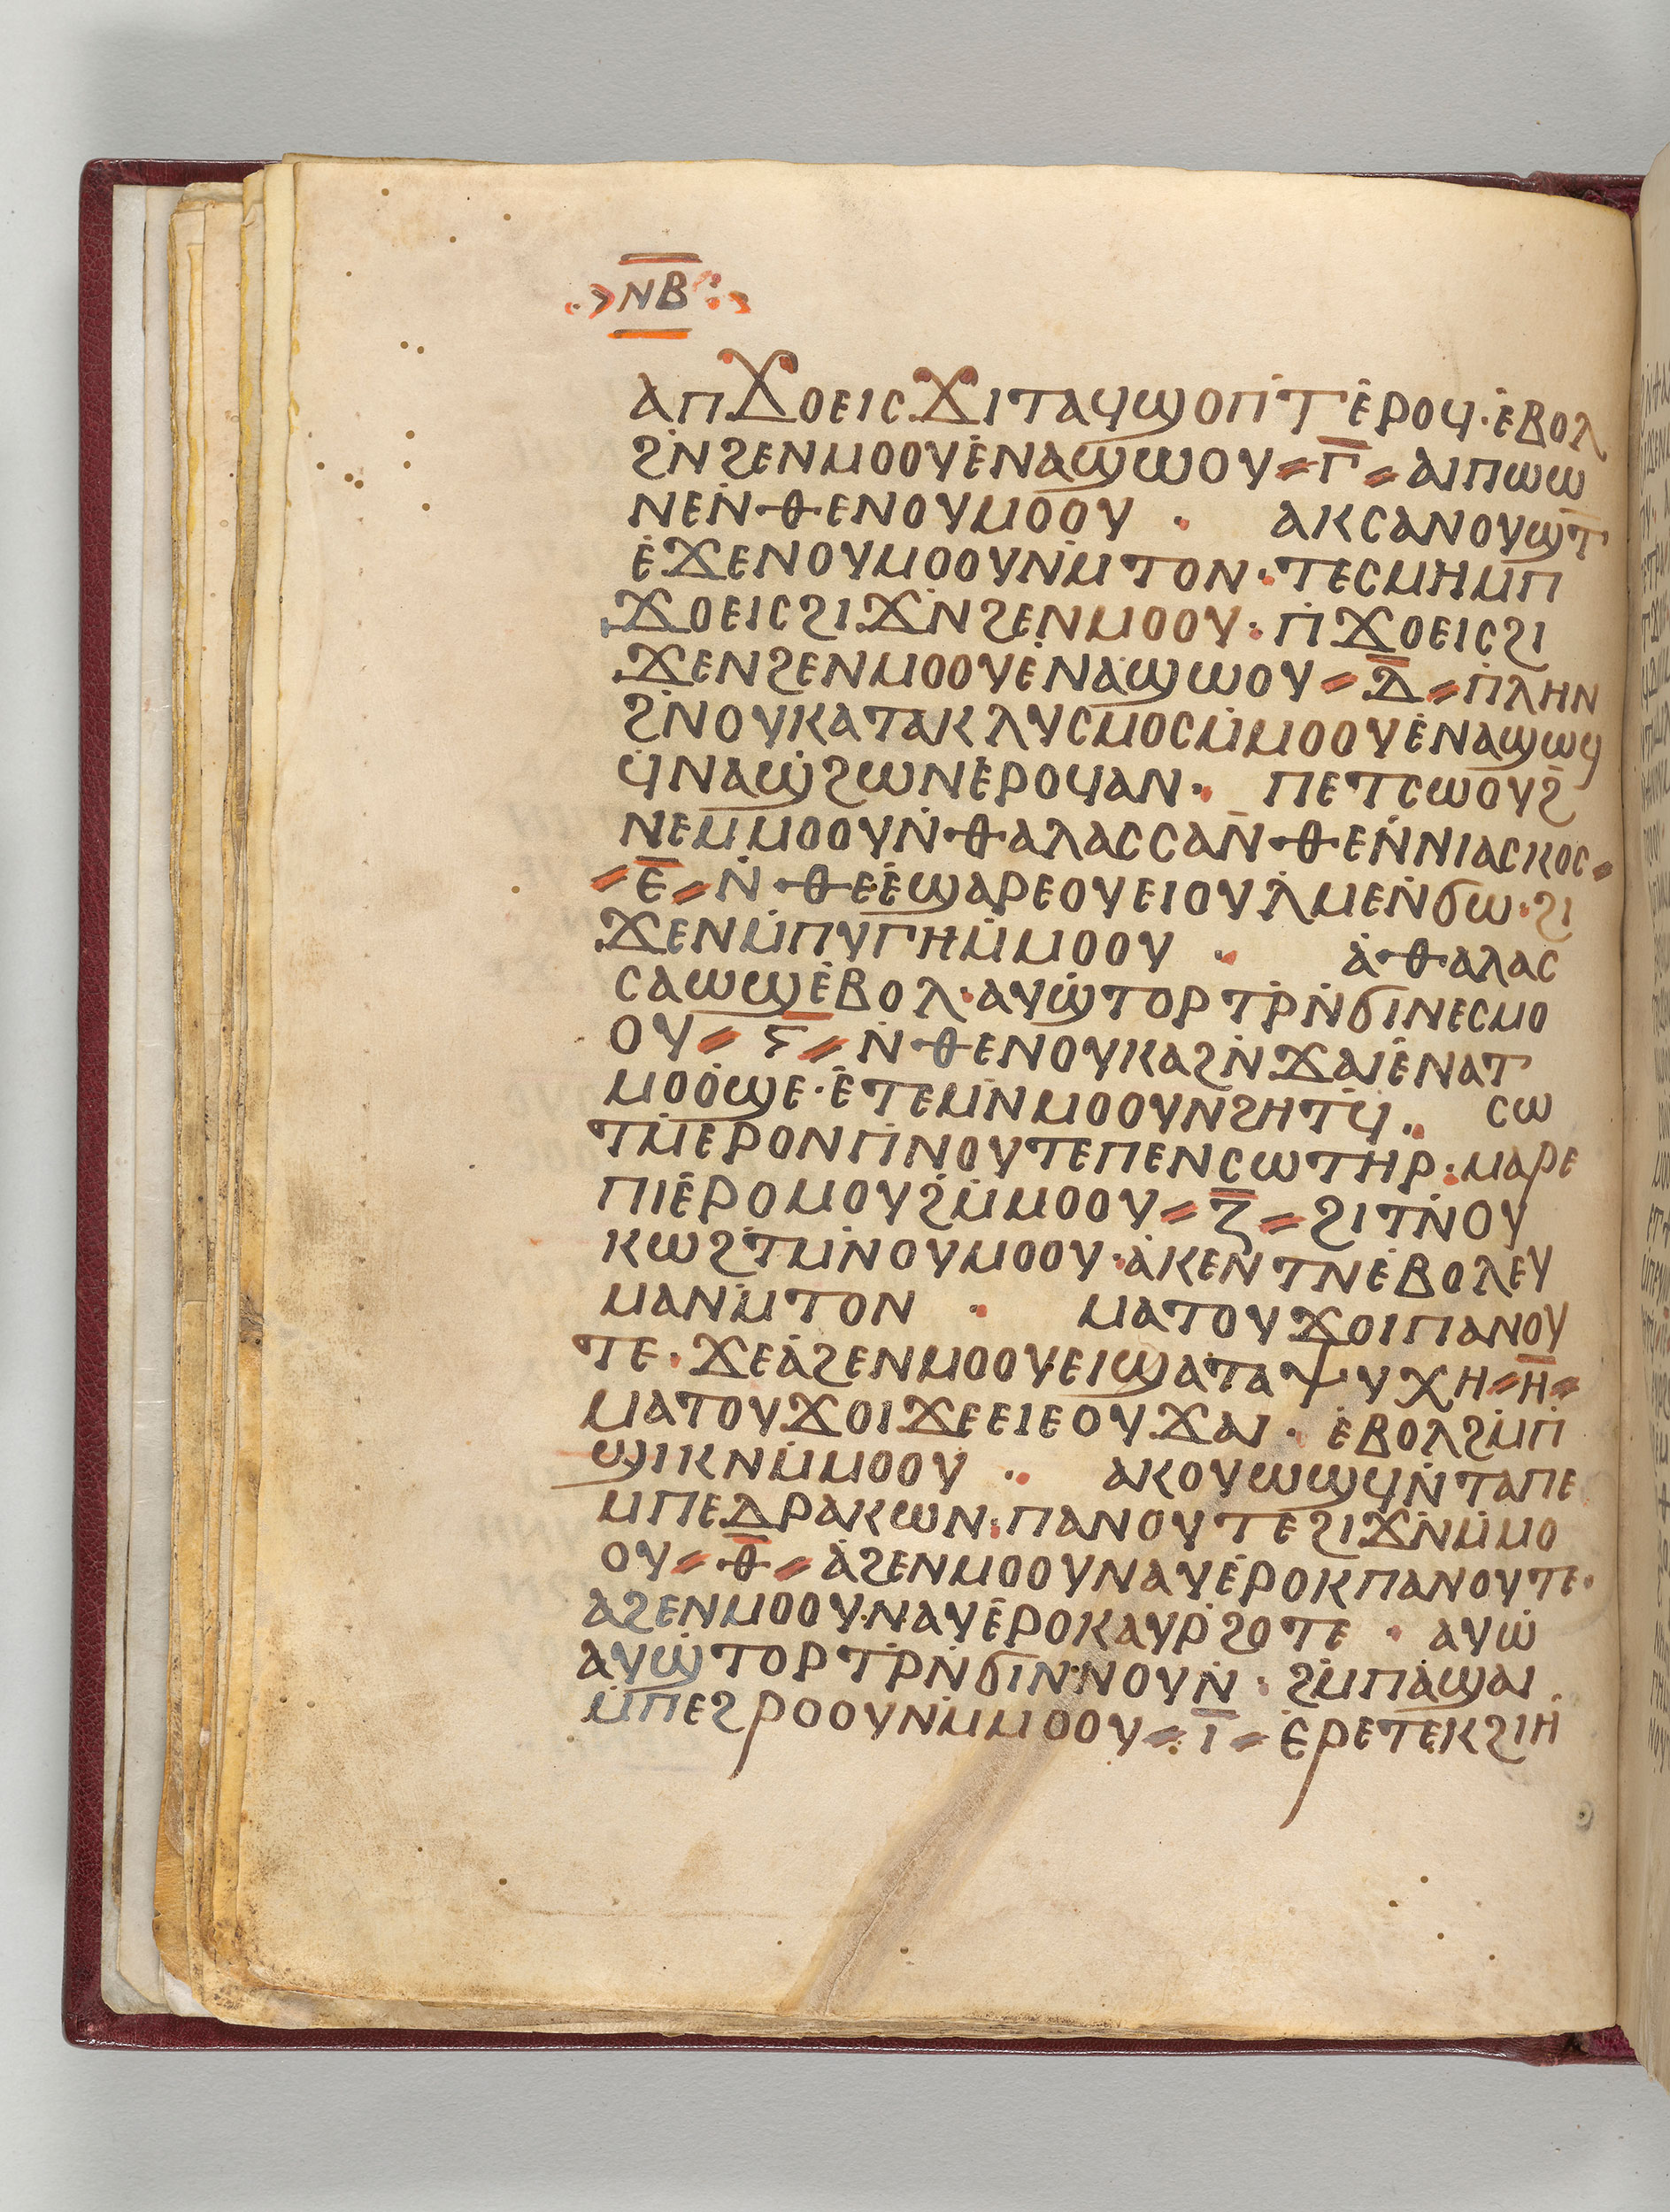 ⲚⲂ
ⲀⲠϪⲞⲈⲒⲤϪⲒⲦⲀϤϢⲞⲠⲦ̇ⲈⲢⲞϤ·ⲈⲂⲞⲖ
ϨⲚ̇ϨⲈⲚⲘⲞⲞⲨⲈ̇ⲚⲀϢⲰⲞⲨ⸗Ⲅ̅⸗ⲀⲒⲠⲰⲰ
ⲚⲈⲚ̇ⲐⲈⲚⲞⲨⲘⲞⲞⲨ · ⲀⲔⲤⲀⲚⲞⲨϢⲦ̅
Ⲉ̇ϪⲈⲚⲞⲨⲘⲞⲞⲨⲚ̇ⲘⲦⲞⲚ·ⲦⲈⲤⲘⲎⲘⲠ
ϪⲞⲈⲒⲤϨⲒϪⲚ̇ϨⲈⲚⲘⲞⲞⲨ·Ⲡ̇ϪⲞⲈⲒⲤϨⲒ
ϪⲈⲚϨⲈⲚⲘⲞⲞⲨⲈ̇ⲚⲀϢⲰⲞⲨ⸗Ⲇ̅⸗Ⲡ̇ⲖⲎⲚ
ϨⲚ̇ⲞⲨⲔⲀⲦⲀⲔⲖⲨⲤⲘⲞⲤⲘ̇ⲘⲞⲞⲨⲈ̇ⲚⲀϢⲰϤ
ϤⲚⲀϢ̇ϨⲰⲚⲈ̇ⲢⲞϤⲀⲚ· ⲠⲈⲦⲤⲰⲞⲨϨ̅
ⲚⲈⲘⲘⲞⲞⲨⲚ̇ⲐⲀⲖⲀⲤⲤⲀⲚ̅ⲐⲈⲚ̇ⲚⲒⲀⲤⲔⲞⲤ⸗
⸗Ⲉ̅⸗Ⲛ̇ⲐⲈⲈ̇ϢⲀⲢⲈⲞⲨⲈⲒⲞⲨⲖ̇ⲘⲈⲚ̇ϬⲰ·ϨⲒ
ϪⲈⲚⲘ̇ⲠⲨⲄⲎⲘ̇ⲘⲞⲞⲨ · Ⲁ̇ⲐⲀⲖⲀⲤ
ⲤⲀⲰϢⲈ̇ⲂⲞⲖ·ⲀⲨϢ̇ⲦⲞⲢⲦⲢ̇Ⲛ̇ϬⲒⲚⲈⲤⲘⲞ
ⲞⲨ⸗Ⲋ̅⸗Ⲛ̇ⲐⲈⲚⲞⲨⲔⲀϨⲚ̇ϪⲀⲒⲈ̇ⲚⲀⲦ
ⲘⲞⲞ̇ϢⲈ·Ⲉ̇ⲦⲈⲘⲚ̇ⲘⲞⲞⲨⲚ̇ϨⲎⲦϤ̅· ⲤⲰ
ⲦⲘ̇ⲈⲢⲞⲚⲠ̇ⲚⲞⲨⲦⲈⲠⲈⲚⲤⲰⲦⲎⲢ·ⲘⲀⲢⲈ
ⲠⲒⲈ̇ⲢⲞⲘⲞⲨϨ̇Ⲙ̇ⲘⲞⲞⲨ⸗Ⲍ̅⸗ϨⲒⲦⲚ̇ⲞⲨ
ⲔⲰϨ̇ⲦⲘⲚ̇ⲞⲨⲘⲞⲞⲨ·Ⲁ̇ⲔⲈⲚⲦⲚⲈ̇ⲂⲞⲖⲈⲨ
ⲘⲀⲚ̇ⲘⲦⲞⲚ · ⲘⲀⲦⲞⲨϪⲞⲒⲠⲀⲚⲞⲨ
ⲦⲈ·ϪⲈⲀ̇ϨⲈⲚⲘⲞⲞⲨⲈⲒϢⲀⲦⲀⲮⲨⲬⲎ⸗Ⲏ̅⸗
ⲘⲀⲦⲞⲨϪⲞⲒϪⲈⲈⲒⲈⲞⲨϪⲀⲒ·Ⲉ̇ⲂⲞⲖϨⲘ̇Ⲡ̇
ϢⲒⲔⲚ̇ⲘⲘⲞⲞⲨ ·· ⲀⲔⲞⲨⲰϢϤⲚ̇ⲦⲀⲠⲈ
ⲘⲠⲈⲆⲢⲀⲔⲰⲚ·ⲠⲀⲚⲞⲨⲦⲈϨⲒϪⲚ̇Ⲙ̇ⲘⲞ
ⲞⲨ⸗Ⲑ̅⸗Ⲁ̇ϨⲈⲚⲘⲞⲞⲨⲚⲀⲨⲈ̇ⲢⲞⲔⲠⲀⲚⲞⲨⲦⲈ·
ⲀϨⲈⲚⲘⲞⲞⲨ·ⲚⲀⲨⲈ̇ⲢⲞⲔⲀⲨⲢ̇ϨⲞⲦⲈ · ⲀⲨⲰ̇
ⲀⲨϢ̇ⲦⲞⲢⲦⲢ̇Ⲛ̇ϬⲒⲚ̇ⲚⲞⲨⲚ̇·ϨⲘ̇ⲠⲀ̇ϢⲀⲒ
Ⲙ̇ⲠⲈϨⲢⲞⲞⲨⲚ̇ⲘⲘⲞⲞⲨ⸗Ⲓ̅⸗Ⲉ̇ⲢⲈⲦⲈⲔϨⲒⲎ